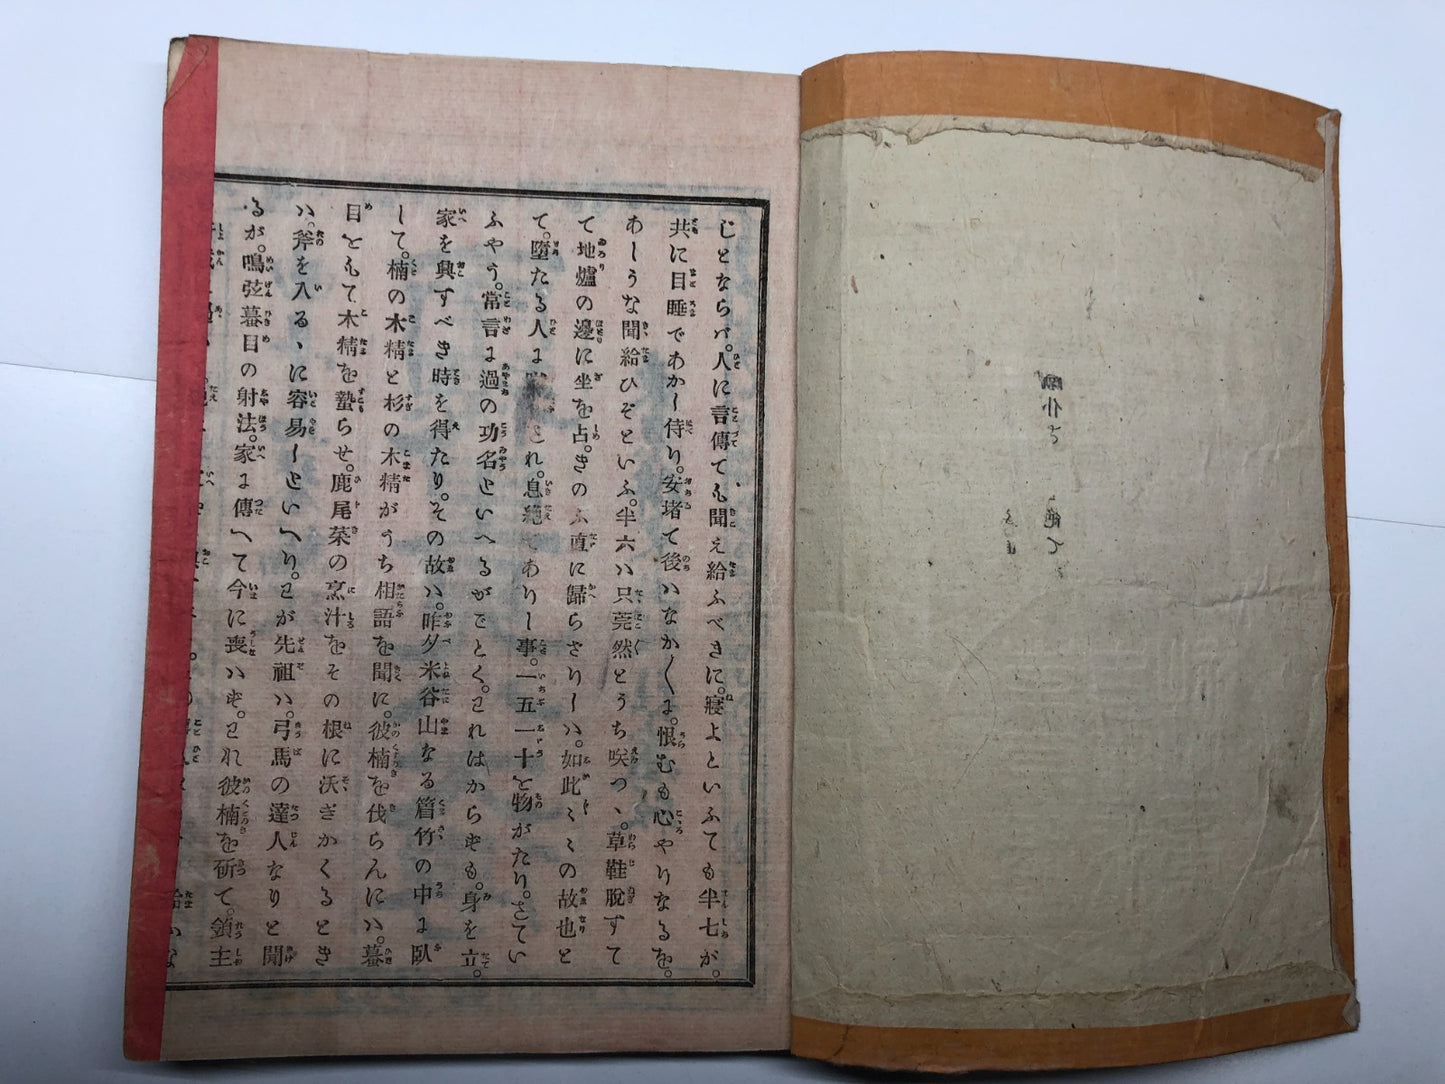 じとならバ。人に言傳ても聞え給ふべきに。寢よといふても半七が。
共に目睡であかし侍り。安堵て後ハなか〳〵に。恨むも心やりなるを。
あしうな聞給ひぞといふ。半六ハ只莞然とうち咲つヽ。草鞋脫すて
て地爐の邊に坐を占。きのふ直に歸らさりしハ。如此〻〻の故也と
て。墮たる人に され。息絕てありし事。一五一十を物がたり。さてい
ふやう。常言に過の功名といへるがごとく。われはからずも。身を立。
家を興すべき時を得たり。その故ハ。昨夕米谷山なる篃竹の中に臥
して。楠の木精と杉の木精がうち相語を聞に。彼楠を伐らんにハ。蟇
目をもて木精を蟄らせ。鹿尾菜の烹汁をその根に沃ぎかくるとき
ハ。斧を入るヽに容易しといへり。わが先祖ハ。弓馬の達人なりと聞
るが。鳴弦蟇目の射法。家に傳へて今に喪ハず。われ彼楠を斫て。領主